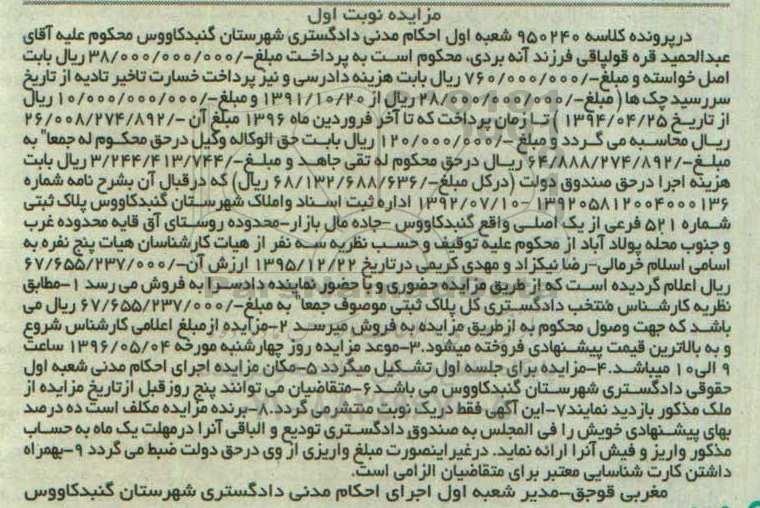 مزایده نوبت اول
درپرونده کلاسه ۹۵۰۲۴۰ شعبه اول احکام مدنی دادگستری شهرستان گنبدکاووس محکوم علیه آقای
عبدالحمید قره قولباقی فرزند آنه بردی، محکوم است به پرداخت مبلغ-/۳۸/۰۰۰/۰۰۰/۰۰۰ ریال بابت
اصل خواسته و مبلغ-/۷۶۰/۰۰۰/۰۰۰ ریال بابت هزینه دادرسی و نیز پرداخت خسارت تاخیر تادیه از تاریخ
سررسید چک ها ( مبلغ-/۲۸/۰۰۰/۰۰۰/۰۰۰ ریال از ۱۳۹۱/۱۰/۲۰ و مبلغ-/۱۰/۰۰۰/۰۰۰/۰۰۰ ریال
از تاریخ ۱۳۹۴/۰۴/۲۵ ) تا زمان پرداخت که تا آخر فروردین ماه ۱۳۹۶ مبلغ آن -/۲۶/۰۰۸/۲۷۴/۸۹۲
ریال محاسبه می گردد و مبلغ -/۱۲۰/۰۰۰/۰۰۰ ریال بابت حق الوکاله وکیل درحق محکوم له جمعا" به
مبلغ-/۶۴/۸۸۸/۲۷۴/۸۹۲ ریال درحق محکوم له تقی جاهد و مبلغ-/۳/۲۴۴/۴۱۳/۷۴۴ ریال بابت
هزینه اجرا درحق صندوق دولت (درکل مبلغ-/۶۸/۱۳۲/۶۸۸/۶۳۶ ریال) که درقبال آن بشرح نامه شماره
۱۳۹۲۰۵۸۱۲۰۰۴۰۰۰۱۳۶ -۱۳۹۲/۰۷/۱۰ اداره ثبت اسناد واملاک شهرستان گنبدکاووس پلاک ثبتی
شماره ۵۲۱ فرعی از یک اصلی واقع گنبدکاووس -جاده مال بازار-محدوده روستای آق قایه محدوده غرب
و جنوب محله پولاد آباد از محکوم علیه توقیف و حسب نظریه سه نفر از هیات کارشناسان هیات پنج نفره به
اسامی اسلام خرمالی-رضا نیکزاد و مهدی کریمی درتاریخ ۱۳۹۵/۱۲/۲۲ ارزش آن-/۶۷/۶۵۵/۲۳۷/۰۰۰
ریال اعلام گردیده است که از طریق مزایده حضوری و با حضور نماینده دادسرا به فروش می رسد ۱-مطابق
نظریه کارشناس منتخب دادگستری کل پلاک ثبتی موصوف جمعا" به مبلغ-/۶۷/۶۵۵/۲۳۷/۰۰۰ ریال می
باشد که جهت وصول محکوم به ازطریق مزایده به فروش میرسد ۲-مزایده ازمبلغ اعلامی کارشناس شروع
و به بالاترین قیمت پیشنهادی فروخته میشود.۳-موعد مزایده روز چهارشنبه مورخه ۱۳۹۶/۰۵/۰۴ ساعت
۹ الی۱۰ میباشد.۴-مزایده برای جلسه اول تشکیل میگردد ۵-مکان مزایده اجرای احکام مدنی شعبه اول
حقوقی دادگستری شهرستان گنبدکاووس می باشد۶-متقاضیان می توانند پنج روزقبل ازتاریخ مزایده از
ملک مذکور بازدید نمایند۷-این آگهی فقط دریک نوبت منتشرمی گردد.۸-برنده مزایده مکلف است ده درصد
بهای پیشنهادی خویش را فی المجلس به صندوق دادگستری تودیع و الباقی آنرا درمهلت یک ماه به حساب
مذکور واریز و فیش آنرا ارائه نماید. درغیراینصورت مبلغ واریزی از وی درحق دولت ضبط می گردد ۹-بهمراه
داشتن کارت شناسایی معتبر برای متقاضیان الزامی است.
مغربی قوجق-مدیر شعبه اول اجرای احکام مدنی دادگستری شهرستان گنبدکاووس